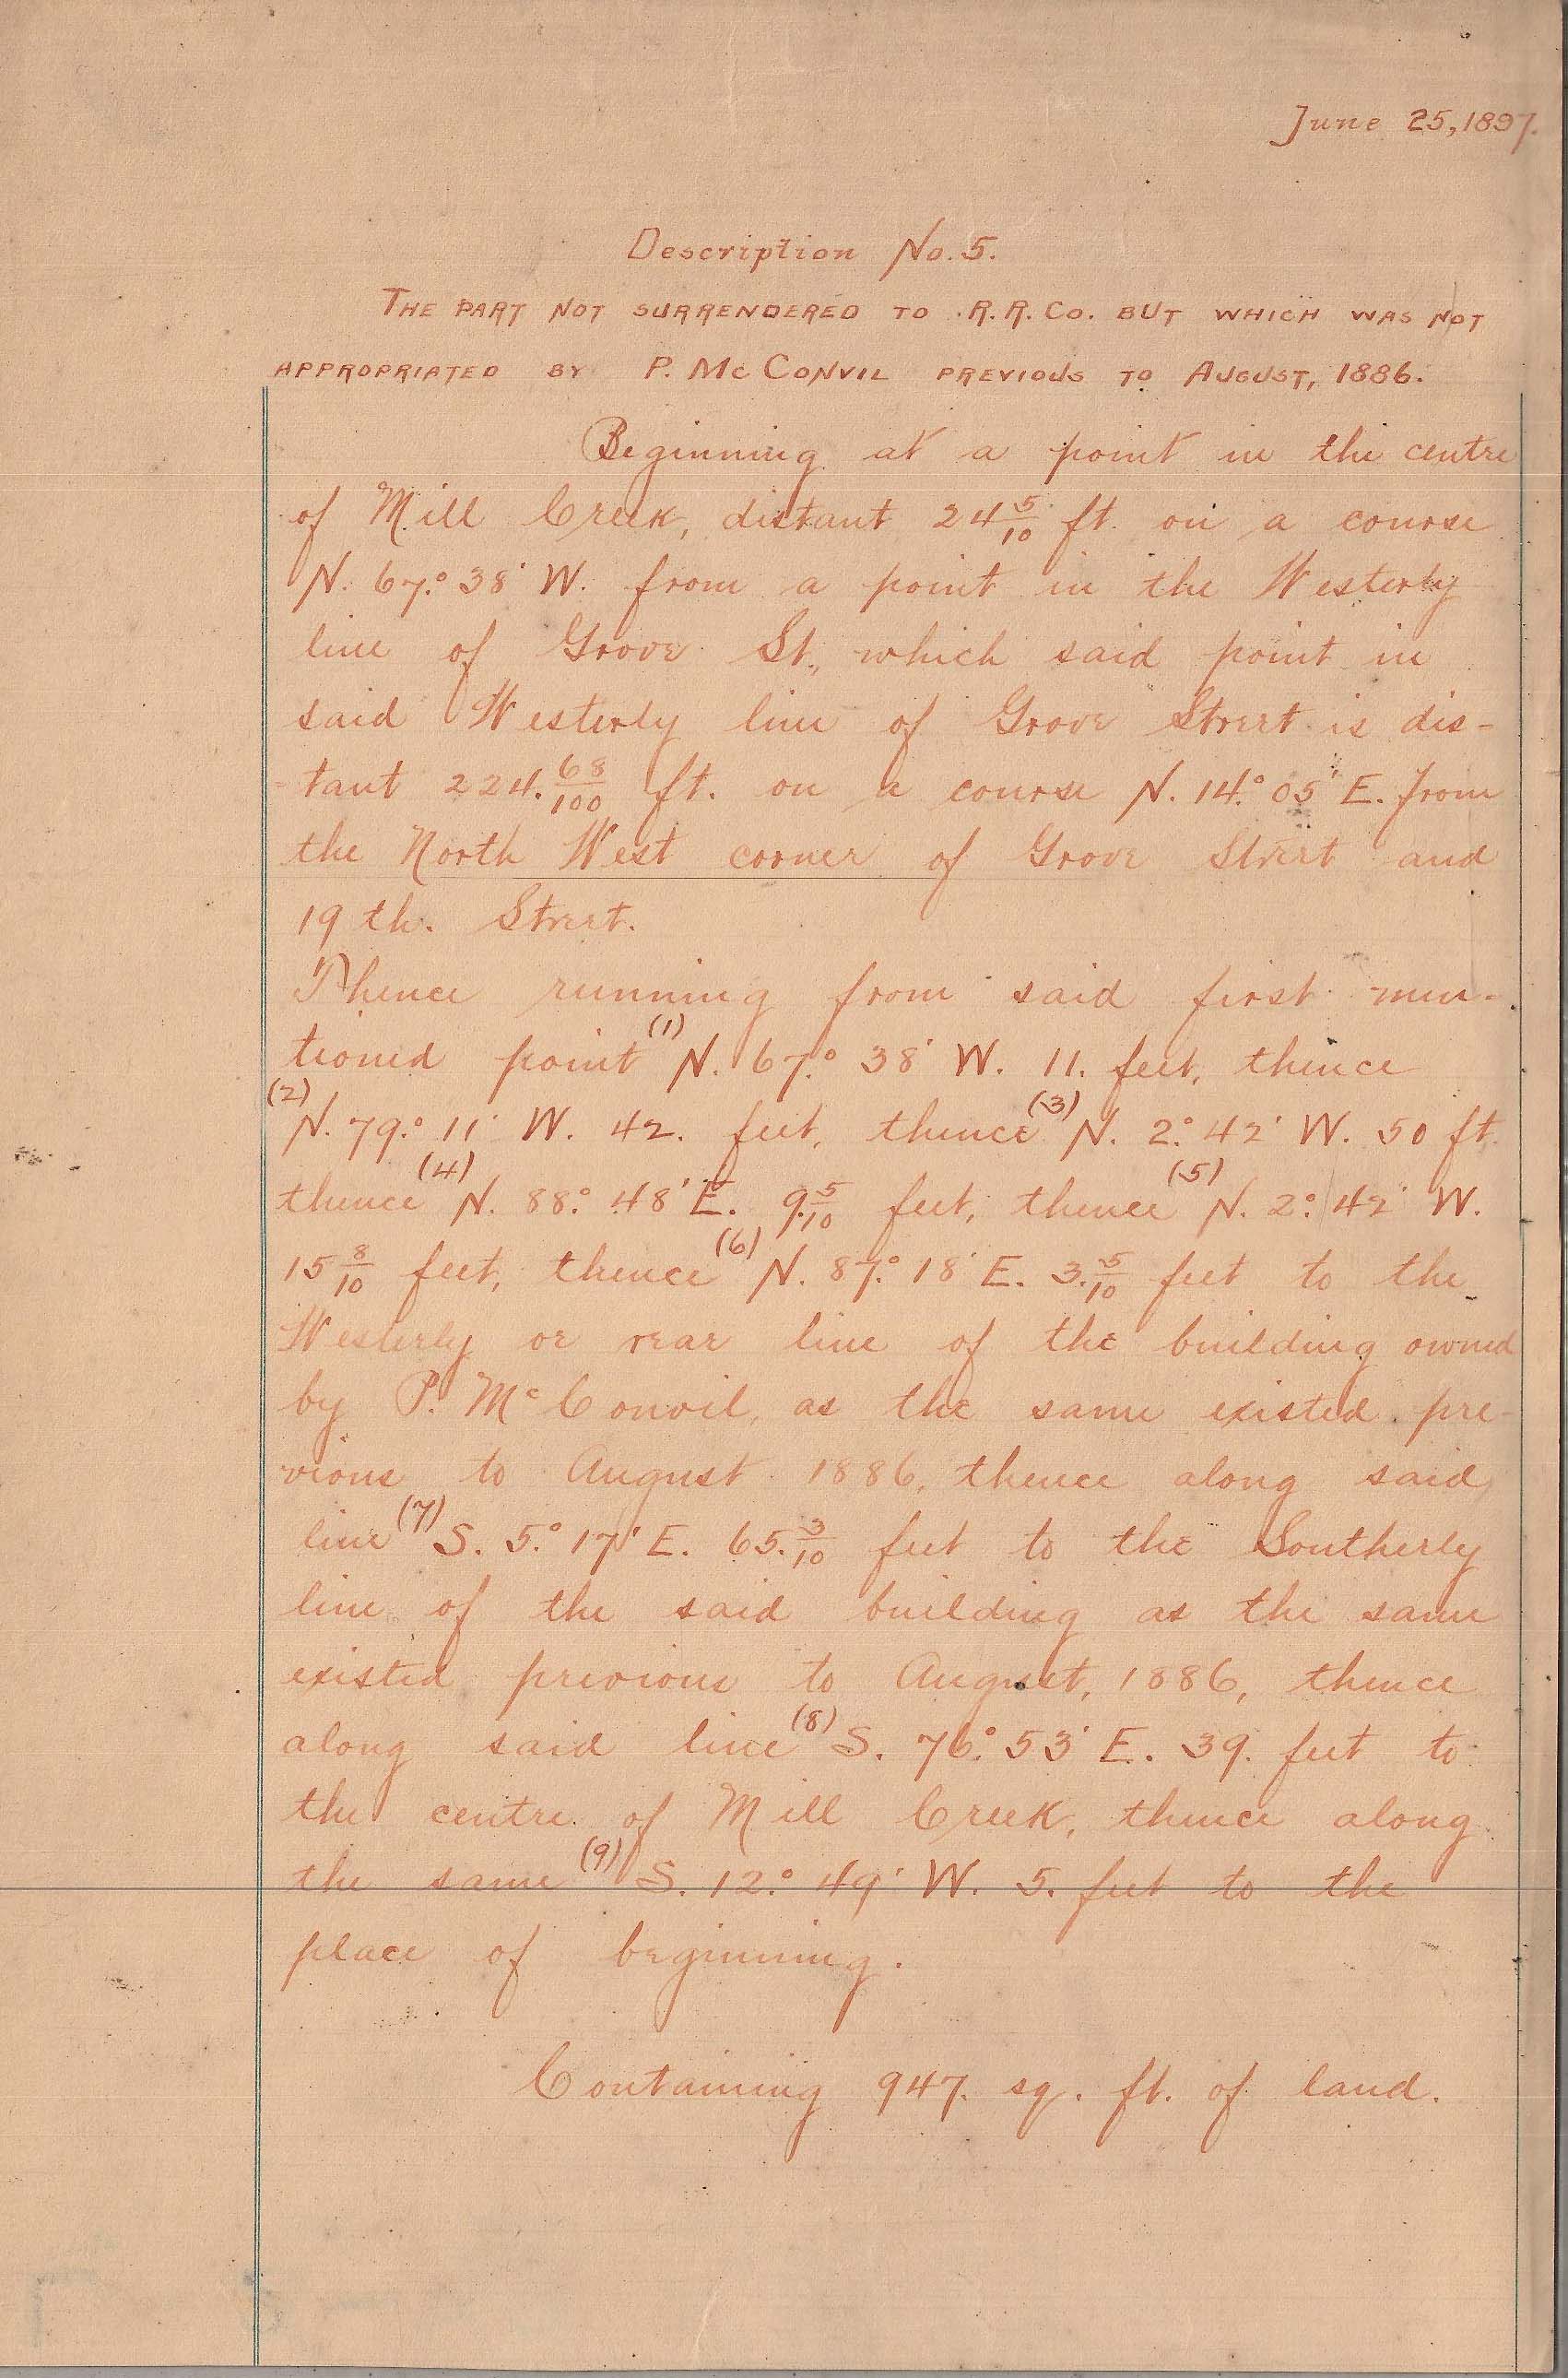 June 25, 1897.
Description No. 5.
THE PART NOT SURRENDERED TO R. R. CO. BUT WHICH WAS NOT
APPROPRIATED BY P. McCONVIL PREVIOUS TO AUGUST, 1886.
Beginning at a point in the centre
of Mill Creek, distant 24 5/10 ft. on a course
N. 67.° 38' W. from a point in the Westerly
line of Grove St., which said point in
said Westerly line of Grove Street is dis-
tant 224. 68/100 ft. on a course N. 14.° 05' E. from
the North West corner of Grove Street and
19 th. Street.
Thence running from said first men-
tioned point (1) N. 67.° 38' W. 11. feet, thence
(2) N. 79.° 11' W. 42. feet, thence (3) N. 2.° 42' W. 50 ft.
thence (4) N. 88.° 48' E. 9. 5/10 feet, thence (5) N. 2.° 42' W.
15 8/10 feet, thence (6) N. 87.° 18' E. 3. 5/10 feet to the
Westerly or rear line of the building owned
by P. McConvil, as the same existed pre-
vious to August 1886, thence along said
line (7) S. 5.° 17' E. 65. 3/10 feet to the Southerly
line of the said building as the same
existed previous to August, 1886, thence
along said line (8) S. 76.° 53' E. 39. feet to
the centre of Mill Creek, thence along
the same (9) S. 12.° 49' W. 5. feet to the
place of beginning.
Containing 947. sq. ft. of land.